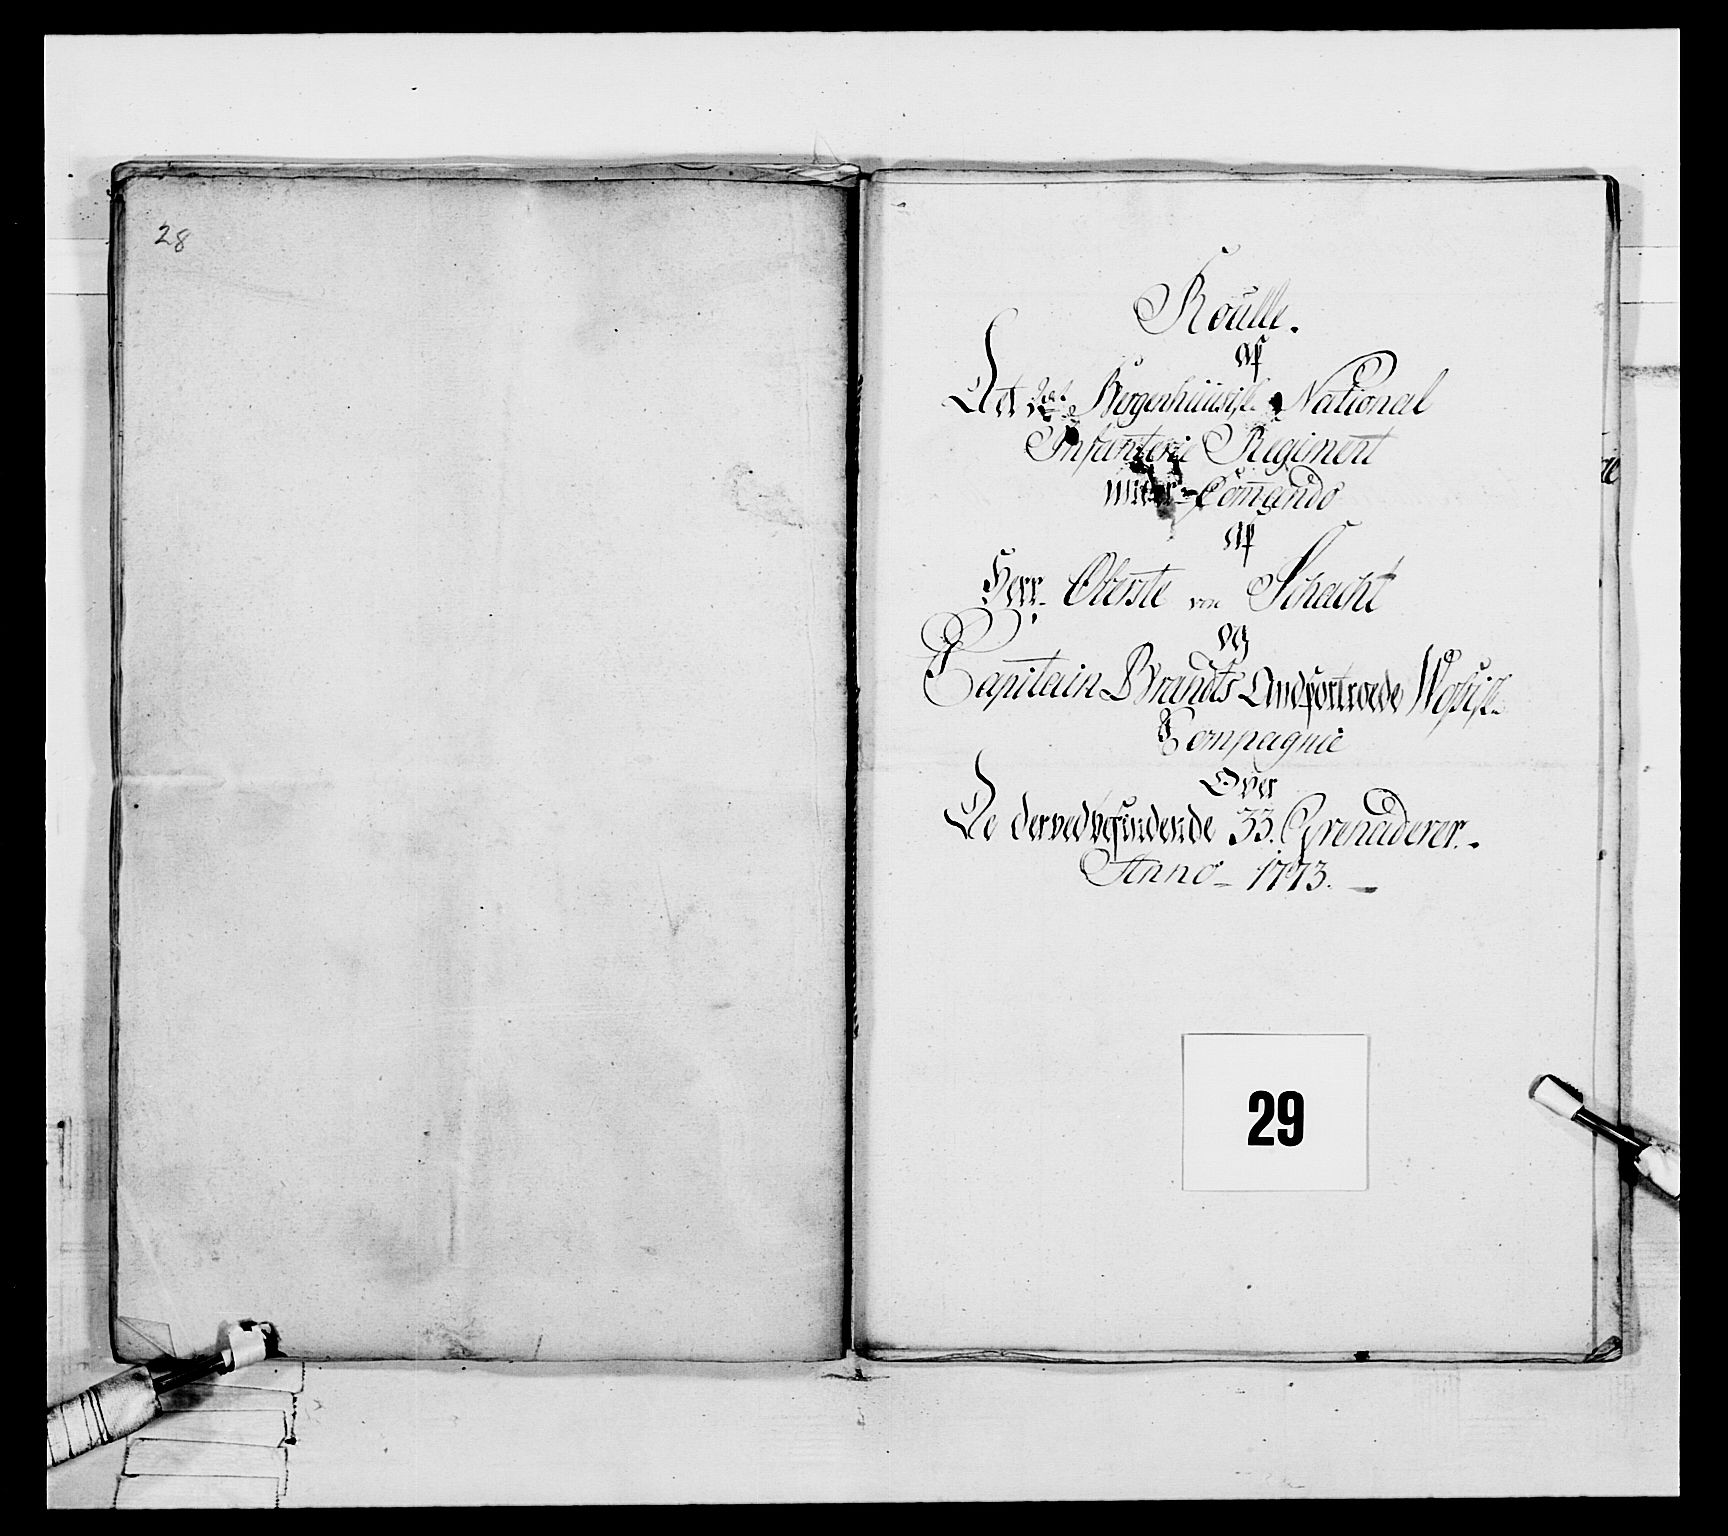 28
Roulle.
Af
Det Bergenhuusiske National
Infanterie Regiment
under Commando
Af
Herr Oberste von Schacht
og
Capitain Brandts Andfortroede Wossiske
Compagnie
Over
De derved befindende 33. Grenaderer.
Anno 1773.
29